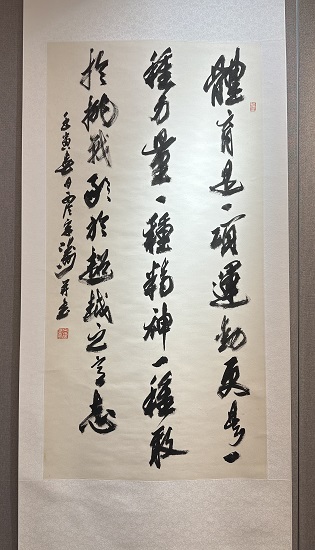 體育是一項運動更是一
種力量一種精神一種敢
於挑戰敢於超越之意志
壬寅春月